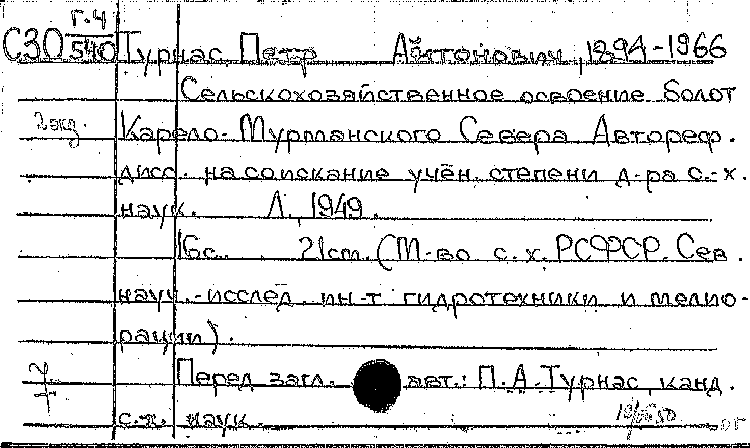 Г.4
С30 540 Турнас, Петр Айтонович, 1894-1966
Сельскохозяйственное освоение болот
2 экз. Карело-Мурманского Севера Автореф.
дисс. на соискание учён. степени д-ра с.-х.
наук. Л., 1949.
16с. 21cm. (М-во с.х. РСФСР. Сев.
науч.-исслед. ин-т гидротехники и мелио-
рации).
Перед загл. авт.: П.А.Турнас, канд.
с.х. наук.